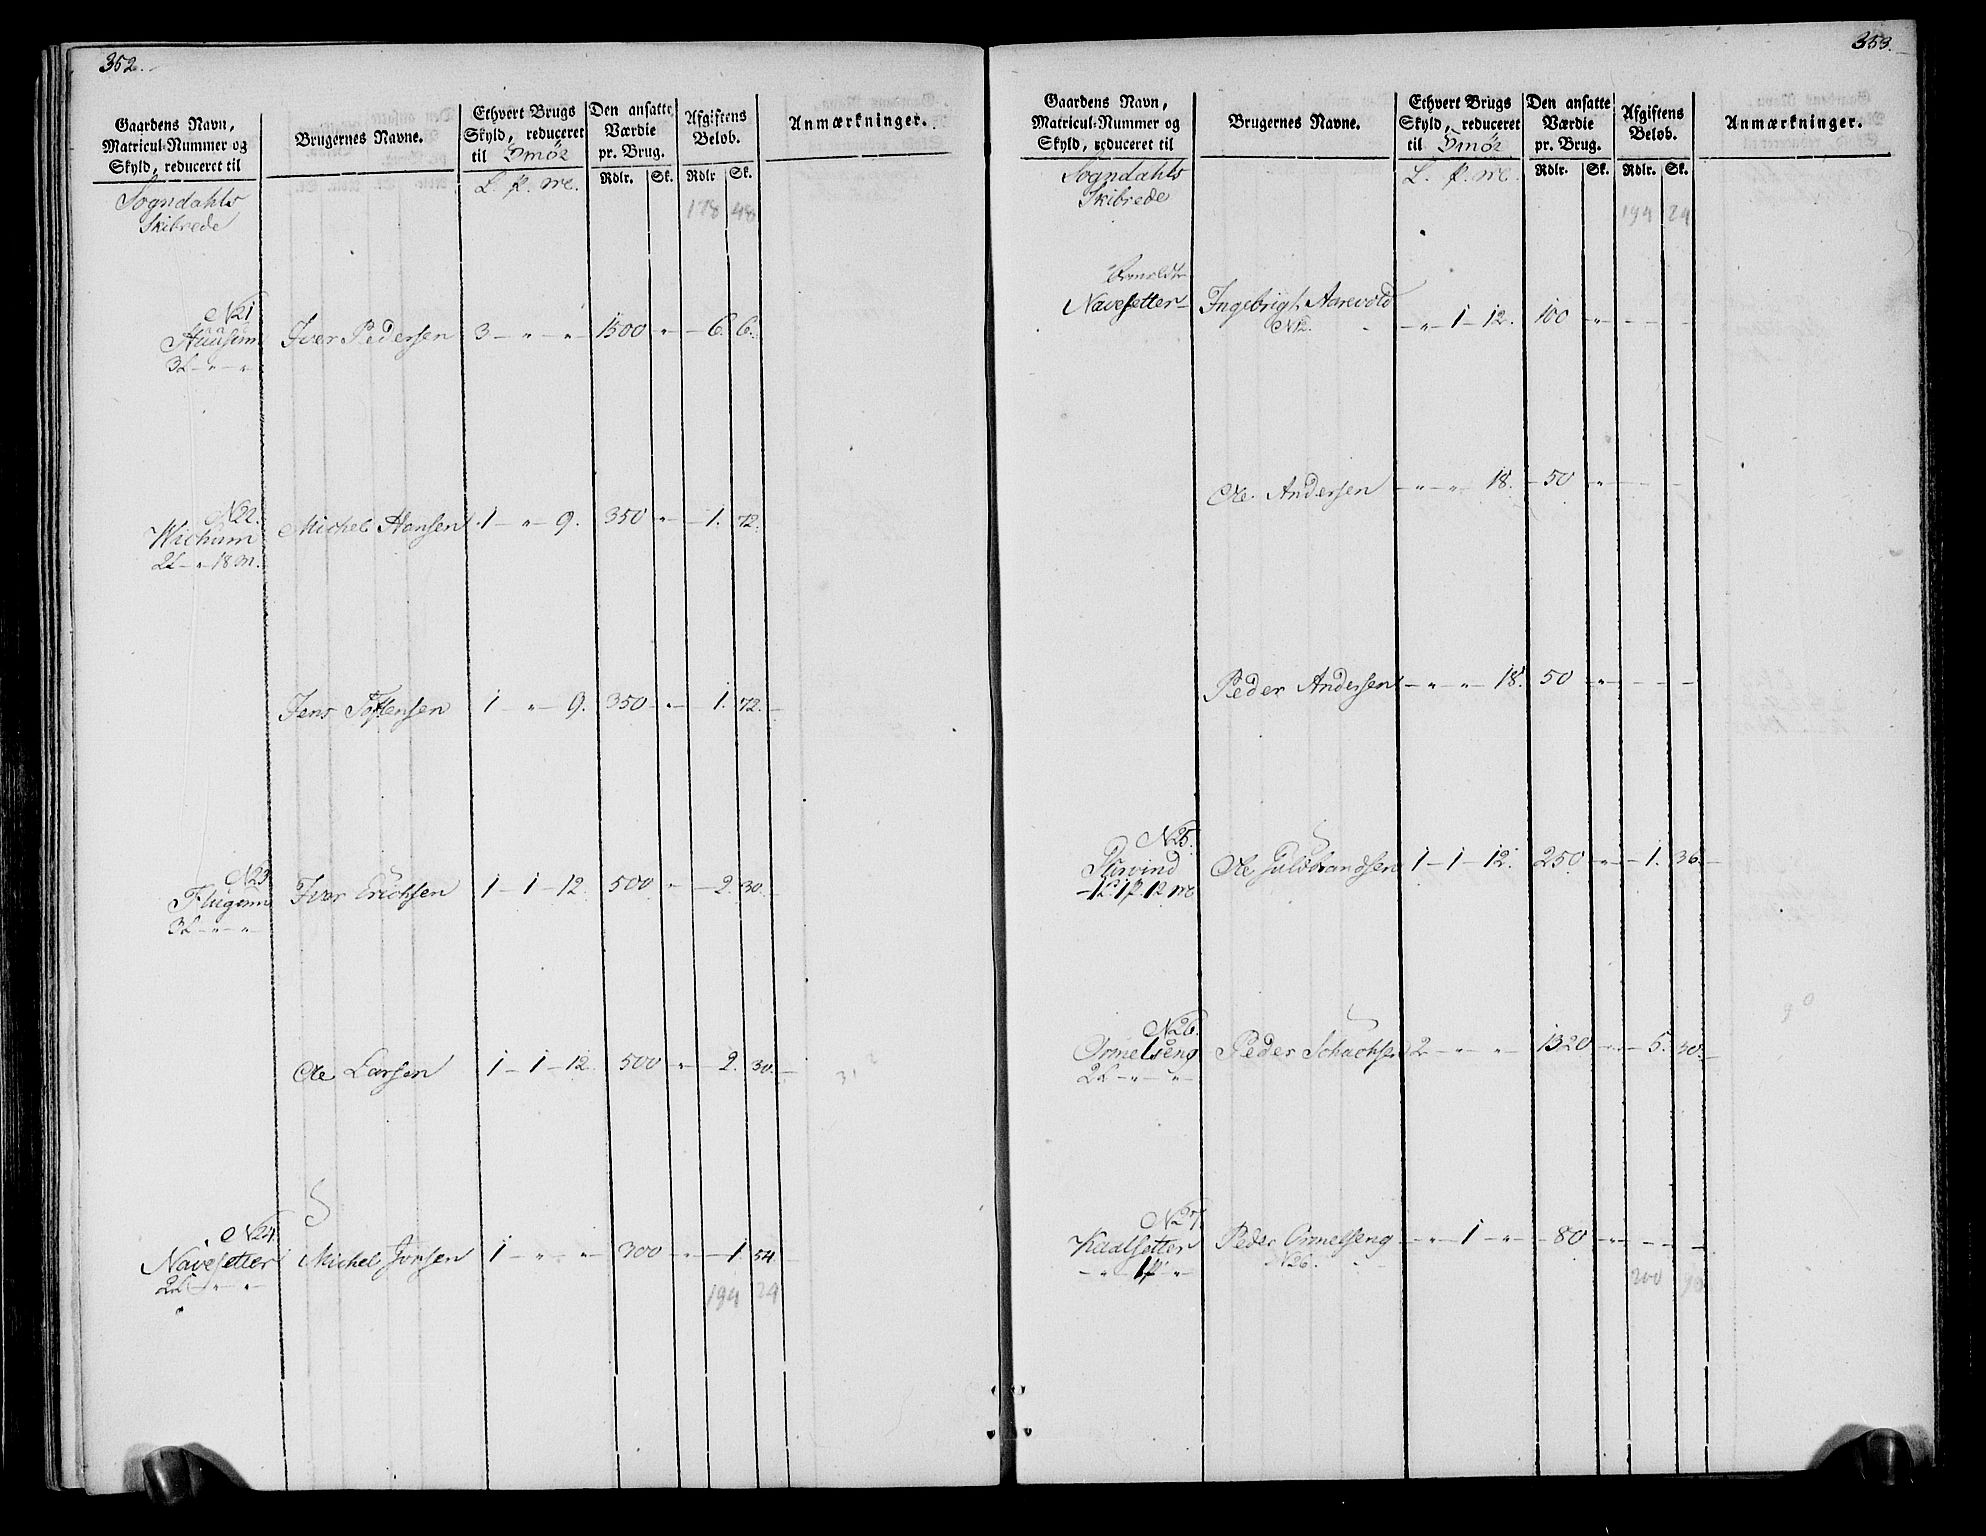 352.
Gaardens Navn, Matricul-Nummer og Skyld, reduceret til
Brugernes Navne.
Ethvert Brugs Skyld, reduceret til Smör
Den ansatte Værdie pr. Brug.
Afgiftens Belob.
Anmærkninger.
Rdlr. Sk. Rdlr Sk.
Sogndahls L. p. mk.
Skibrede 178 48
N21
Iver Pedersen 3 - " - " - 1500 " - 6. 6.
3L - " - "
N22.
Michel Hansen 1 - " - 9. 350 " - 1. 72.
2L - " - 18 m.
Jens Toftensen 1 - " - 9. 350 - " - 1. 72. -
N23.
Flugeim Iver Erichsen 1 - 1 - 12. 500 " - 2. 30. -
3L - " - "
Ole Larsen 1 - 1 - 12. 500 - " - 2. 30. -
N24.
Navesetter Michel Jonsen 1 - " - " - 300 " - 1. 54.
2L - " - "
194 24
353.
Gaardens Navn, Matricul-Nummer og Skyld, reduceret til
Brugernes Navne.
Ethvert Brugs Skyld, reduceret til Smör
Den ansatte Værdie pr. Brug.
Afgiftens Belob.
Anmærkninger.
Rdlr. Sk. Rdlr. Sk.
Sogndahls L. p. mk.
Skibrede 194 24
Navesetter - Ingebrigt Aarevold - " - 1 - 12. 100 - " - - -
N12.
Ole Andersen - " - " - 18. - 50 - " - - -
Peder Andersen - " - " - 18. - 50 " - - -
N25.
Ole Guldbrandsen 1 - 1 - 12. 250 - " - 1. 36. -
- 1L 1p 12 mk
N26.
Ormelseng Peder Schachsen 2 - " - " - 1320 - " - 5. 30. -
2L - " - "
N27.
Kaalsetter Peder Ormelseng - " - 1 - " - 80 - " - - -
- " - 1p - " N26.
200